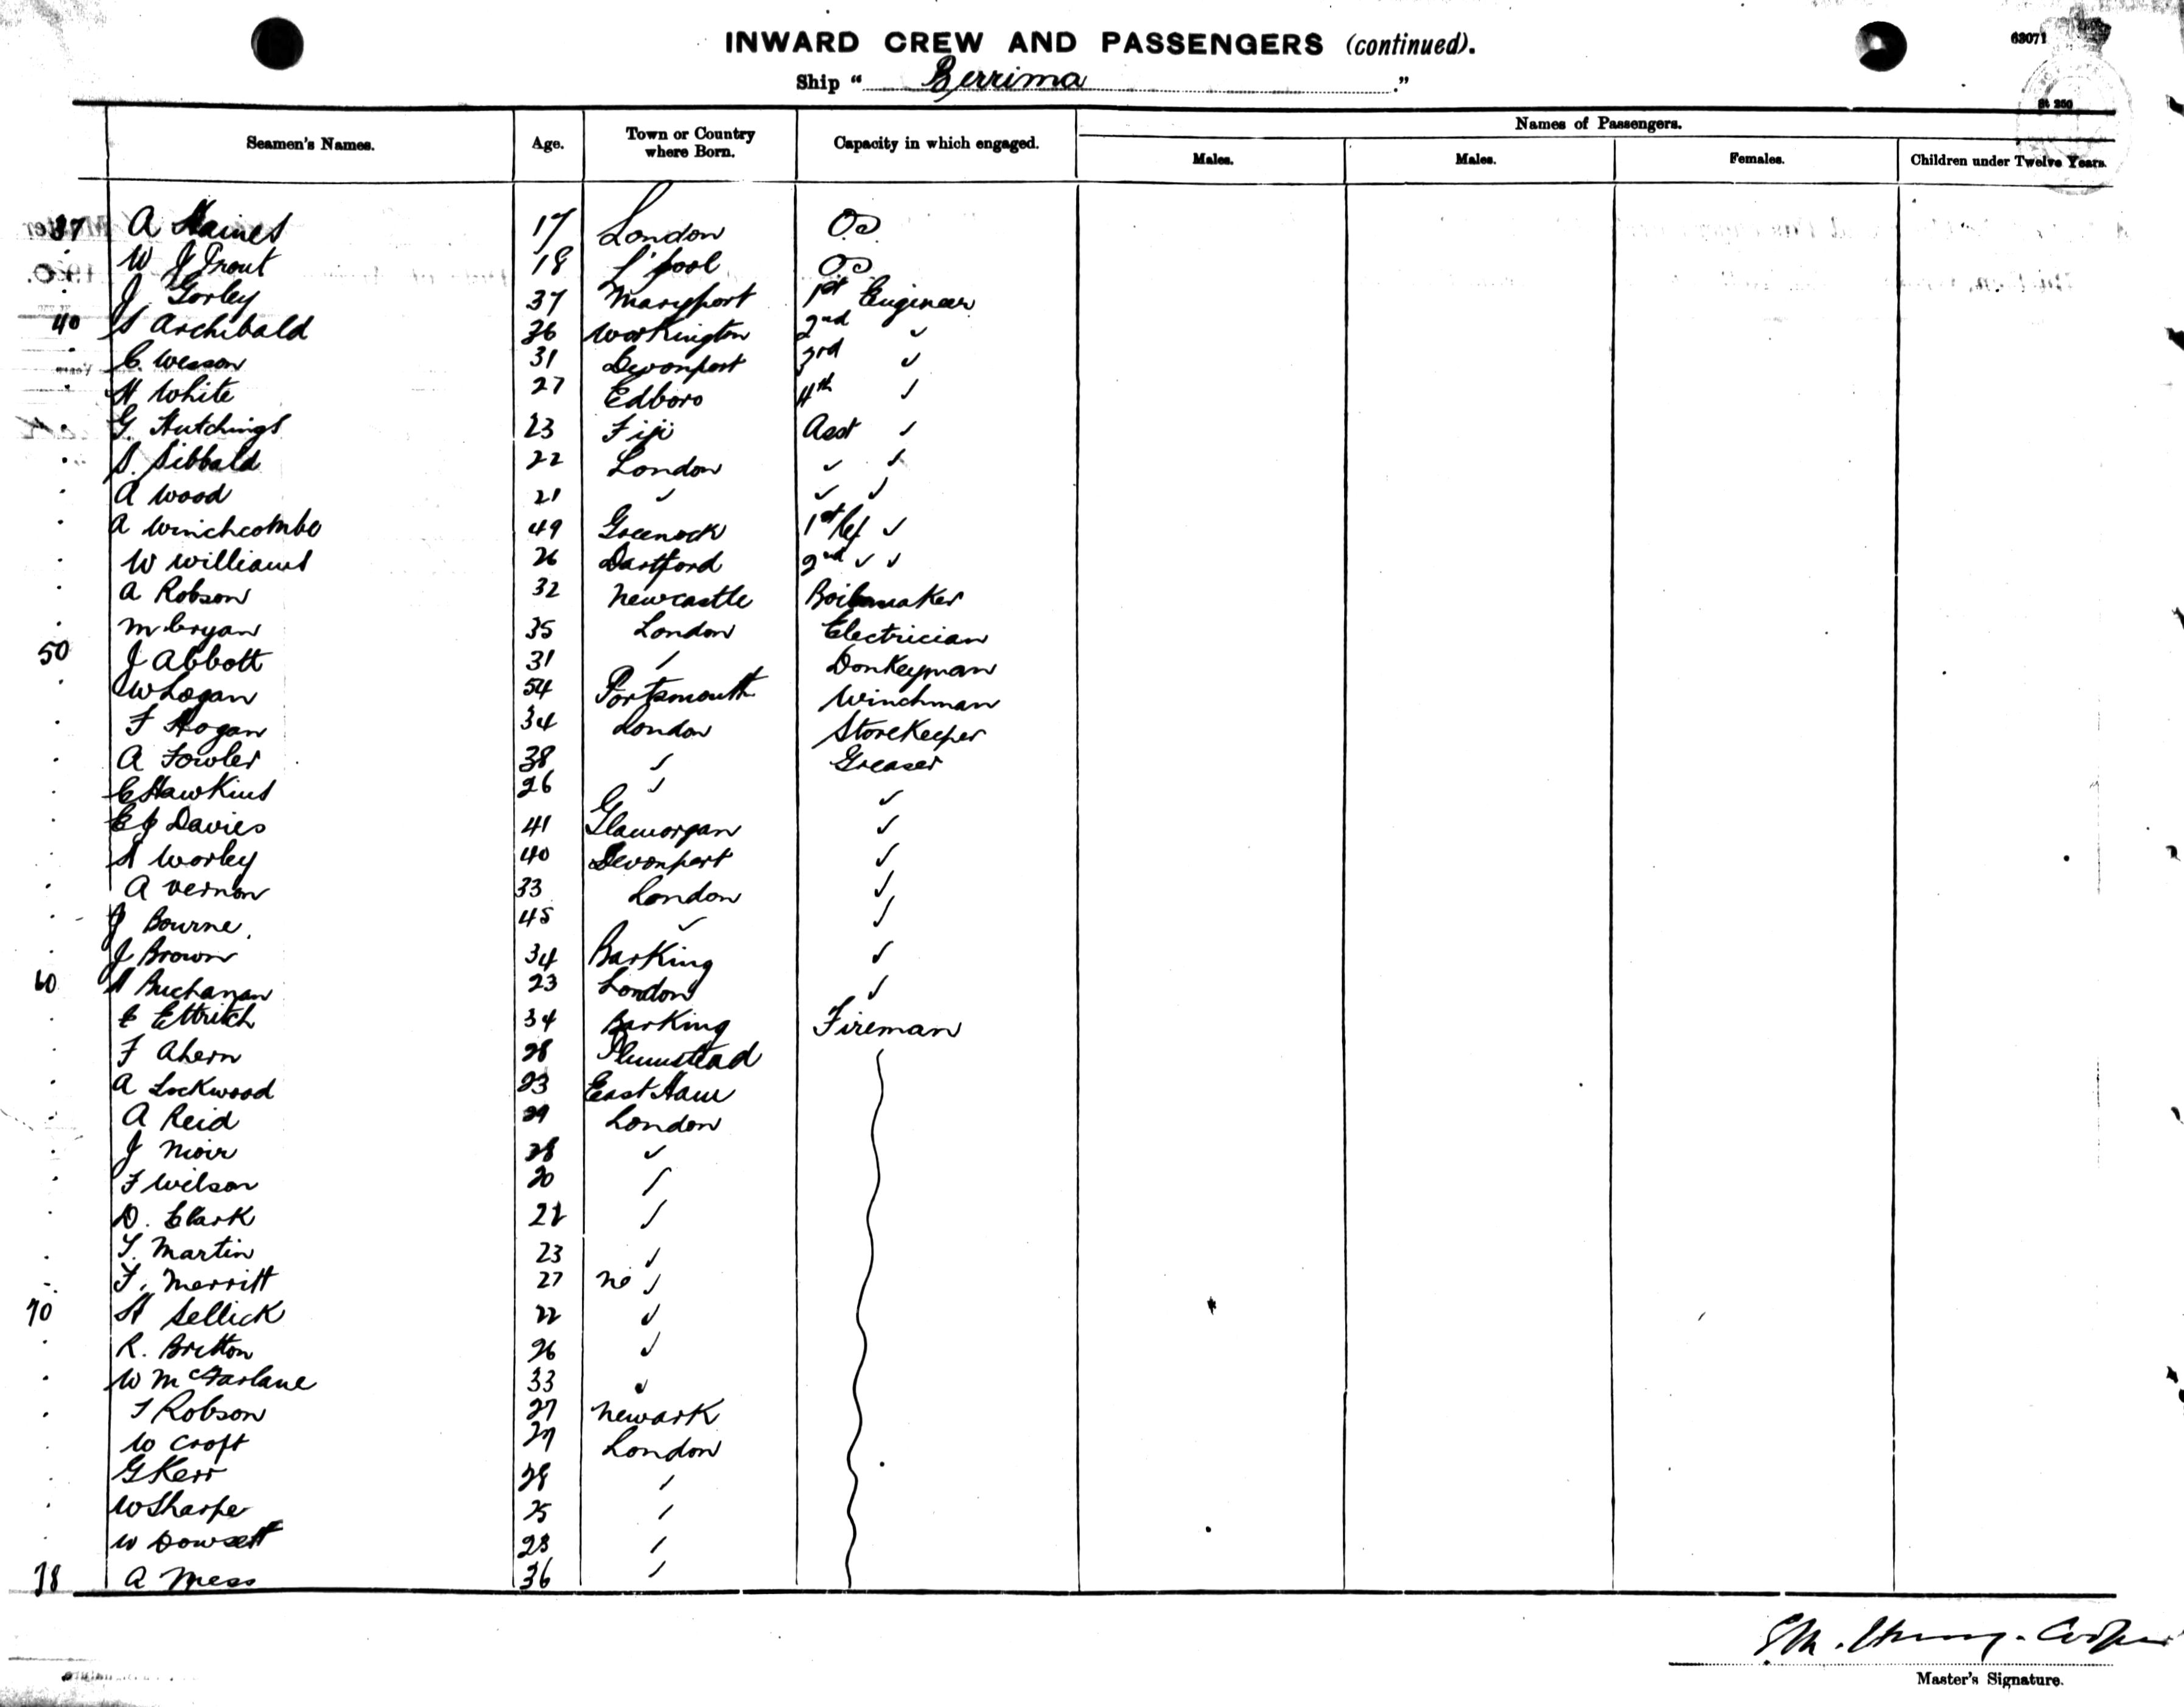 INWARD CREW AND PASSENGERS (continued).
63071
Ship " Berrima "
Seamen's Names. Age. Town or Country where Born. Capacity in which engaged. Names of Passengers.
Males. Males. Females. Children under Twelve Years.
37 A Haines 17 London OS
W J Trout 18 L'pool OS
J Gorley 37 Maryport 1st Engineer
40 S Archibald 36 Workington 2nd ✓
C Wesson 31 Devonport 3rd ✓
H White 27 Edboro 4th ✓
G. Hutchings 23 Fiji Asst ✓
S. Sibbald 22 London ✓ ✓
A Wood 21 ✓ ✓ ✓
A Winchcombe 49 Greenock 1st Ref ✓
W Williams 26 Dartford 2nd ✓ ✓
A Robson 32 Newcastle Boilmaker
M Cryan 35 London Electrician
50 J Abbott 31 ✓ Donkeyman
W Logan 54 Portsmouth Winchman
F Hogan 34 London StoreKeeper
A Fowler 38 ✓ Greaser
C Hawkins 26 ✓ ✓
E J Davies 41 Glamorgan ✓
S Worley 40 Devonport ✓
A Vernon 33 London ✓
J Bourne. 45 ✓ ✓
J Brown 34 Barking ✓
60 A Buchanan 23 London ✓
E Ettritch 34 Barking Fireman
F Ahern 28 Plumstead
A Lockwood 23 East Ham
A Reid 29 London
J Moir 28 ✓
F Wilson 20 ✓
D. Clark 22 ✓
T. Martin 23 ✓
F. Merritt 27 No ✓
70 H Sellick 22 ✓
R. Britton 26 ✓
W McFarlane 33 ✓
T Robson 27 Newark
W Croft 27 London
G Kerr 28 ✓
W Sharpe 25 ✓
W Dowsett 23 ✓
78 A Mess 36 ✓
Master's Signature.